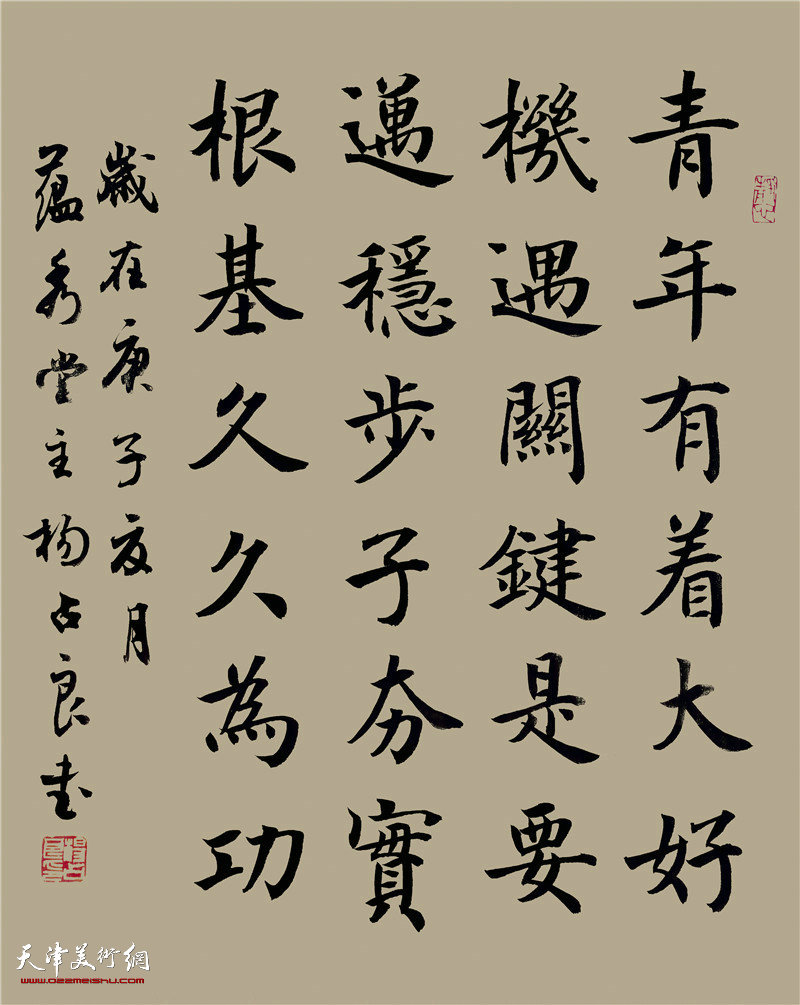 青年有着大好
機遇關鍵是要
邁穩步子夯實
根基久久為功
歲在庚子夏月
蘊秀堂主楊占良书
天津美術網
www.022meishu.com